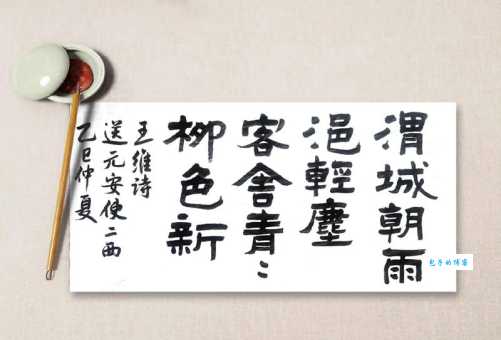 渭城朝雨
浥輕塵
客舍青〻
柳色新
王維诗
送元安使二西
乙巳仲夏
包子的博客